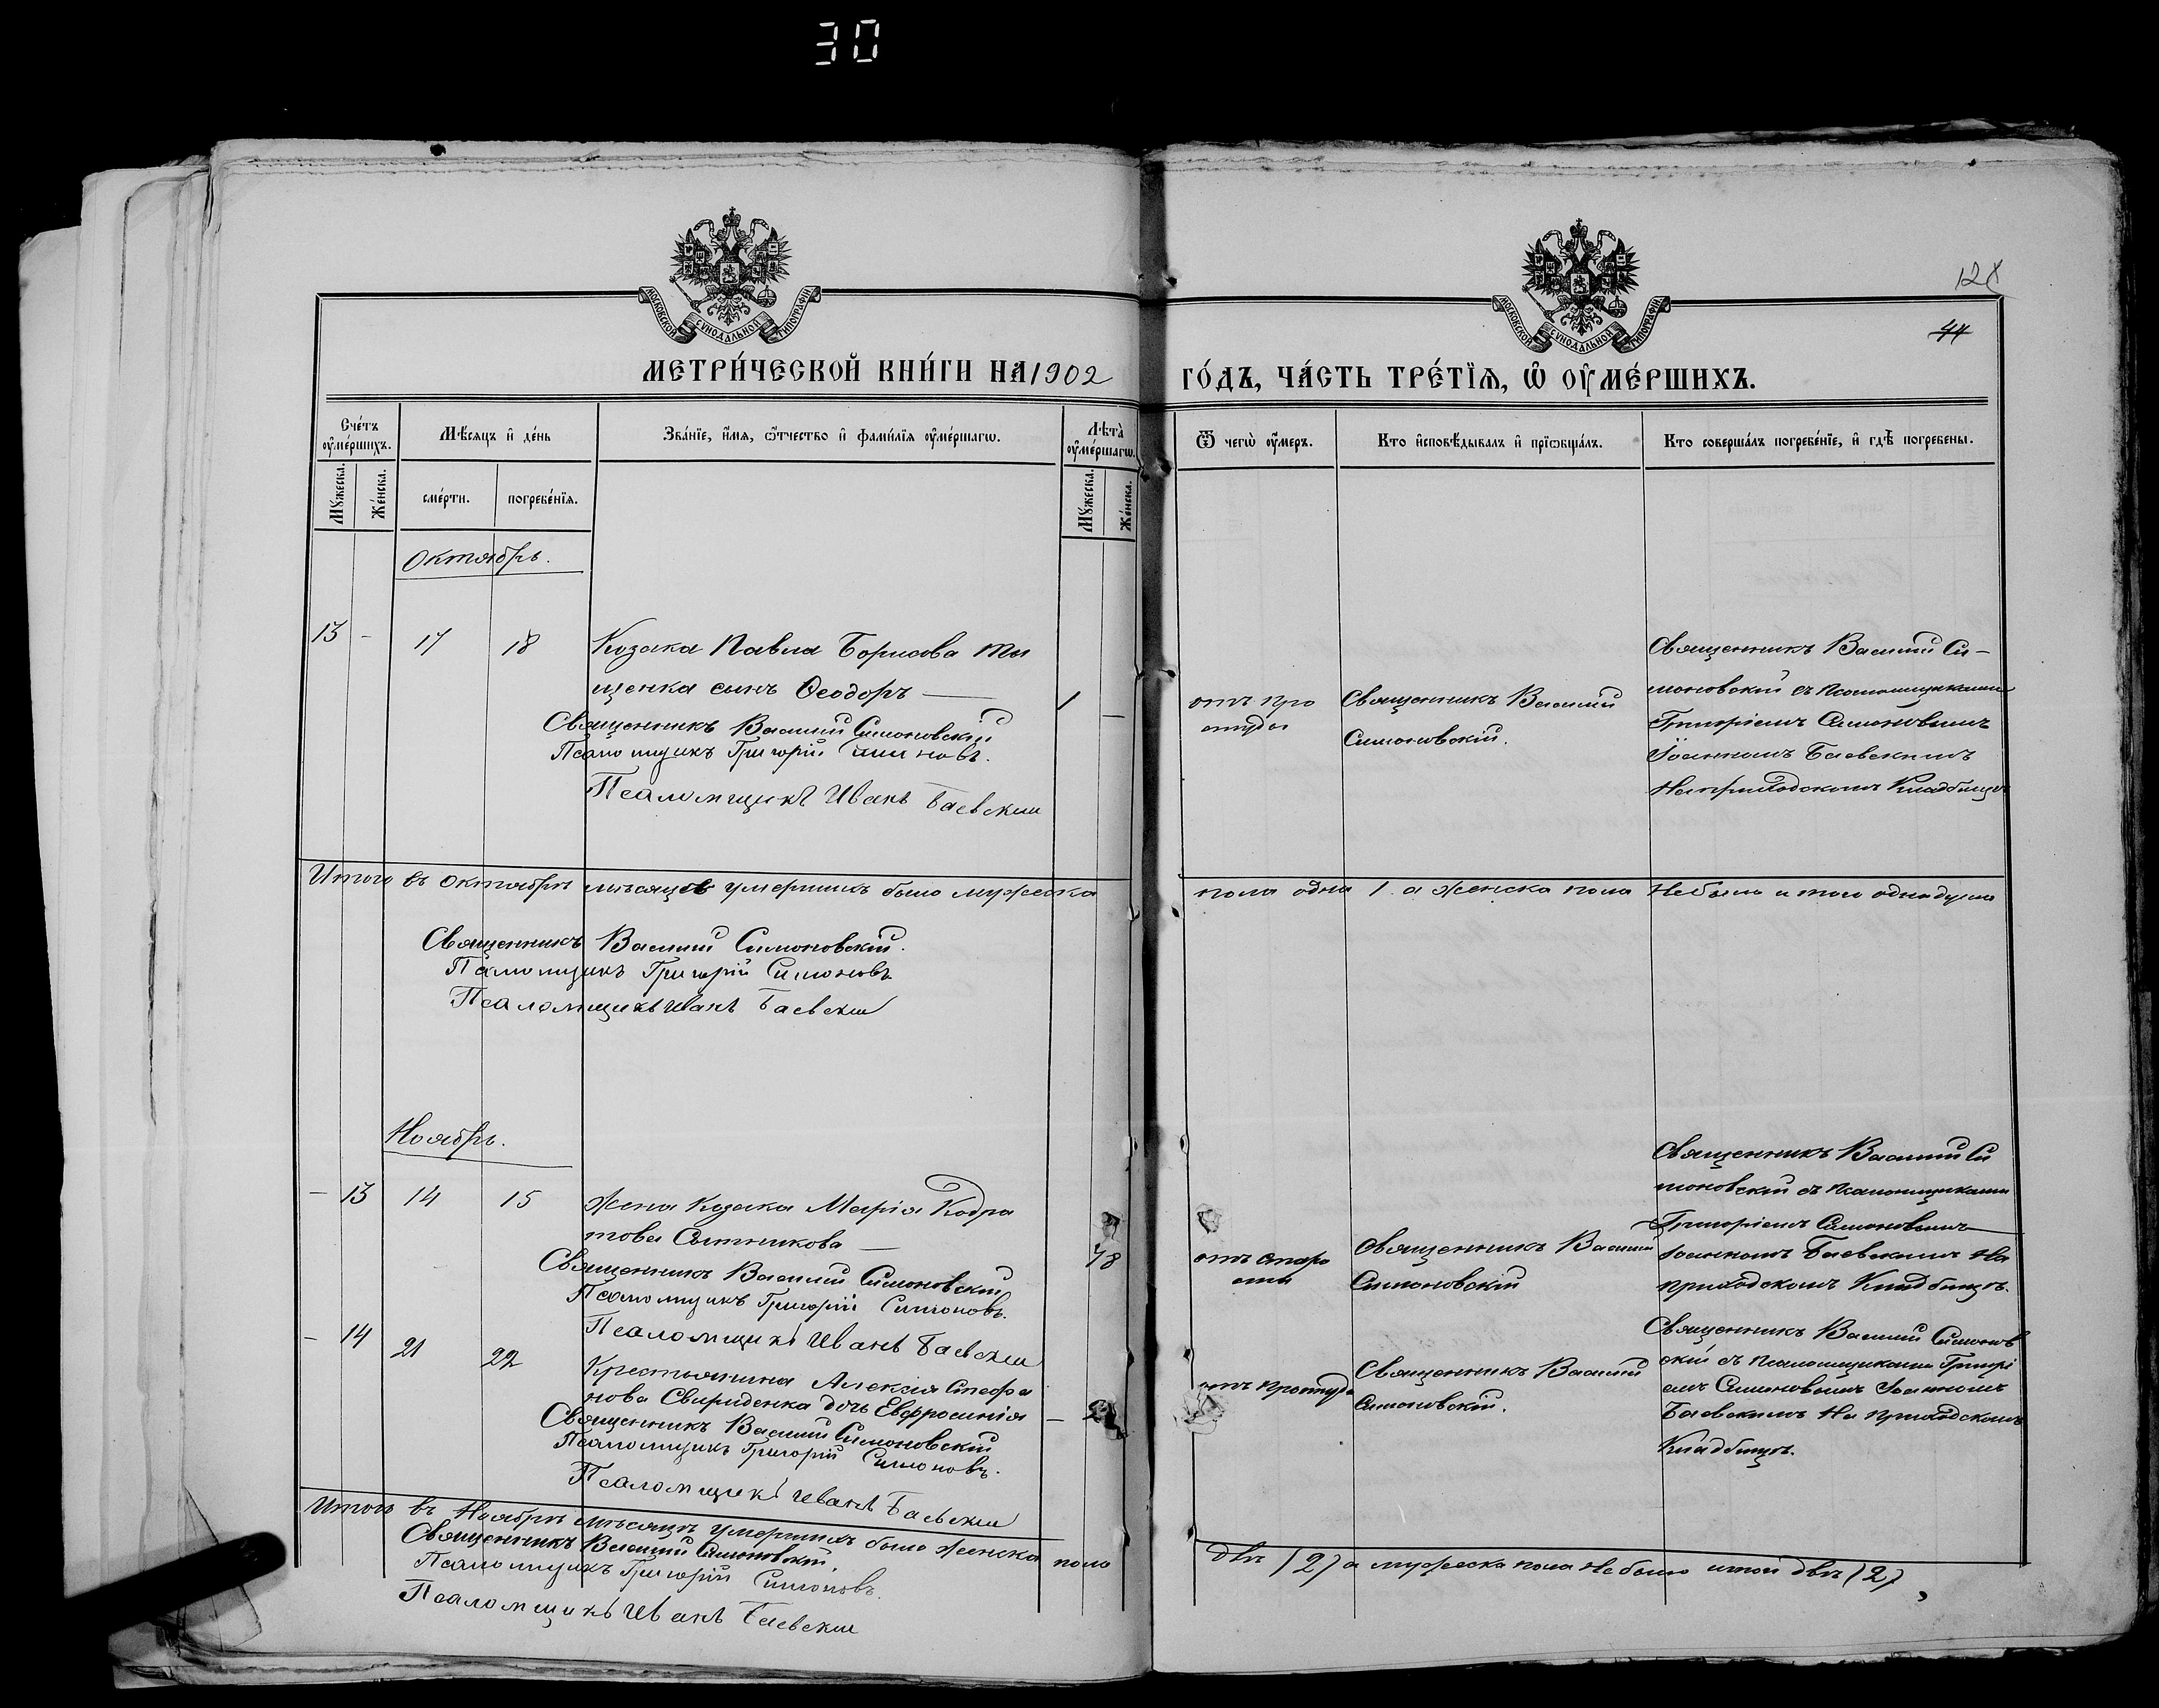 30
МОСКОВСКОЙ СѴНОДАЛЬНОЙ ТИПОГРАФІИ
МОСКОВСКОЙ СѴНОДАЛЬНОЙ ТИПОГРАФІИ
44
МЕТРИ́ЧЕСКОЙ КНИ́ГИ НА 1902
ГО́ДЪ, ЧА́СТЬ ТРЕ́ТЇѦ, Ѡ҆ ОУ҆МЕ́РШИХЪ.
Сче́тъ оу҆ме́ршихъ.
Мѣ́сѧцъ и҆ де́нь
Зва́нїе, и҆́мѧ, ѻ҆́тчество и҆ фами́лїѧ оу҆ме́ршагѡ.
Лѣ́та оу҆ме́ршагѡ.
Ѿ чегѡ̀ оу҆́меръ.
Кто и҆сповѣ́дывалъ и҆ прїѡбща́лъ.
Кто соверша́лъ погребе́нїе, и҆ гдѣ̀ погребены.
Мꙋ́жеска.
Же́нска.
сме́рти.
погребе́нїѧ.
Мꙋ́жеска.
Же́нска.
Октябрь.
13 - 17 18 Козака Павла Борисова Ти
щенка сынъ Ѳеодоръ — 1 —
Священникъ Василій Симоновскій
Псаломщикъ Григорій Симоновъ.
Псаломщикъ Иванъ Баевскій
отъ про
студы
Священникъ Василій
Симоновскій.
Священникъ Василій Си-
моновскій съ псаломщиками
Григоріемъ Симоновымъ
Іоанномъ Баевскимъ
На приходскомъ Кладбищѣ
Итого въ Октябрѣ мѣсяцѣ умершихъ было мужеска
пола одна 1. а женска пола Не было итого одна душа
Священникъ Василій Симоновскій.
Псаломщикъ Григорій Симоновъ
Псаломщикъ Иванъ Баевскій
Ноябрь.
- 13 14 15 Жена Козака Марія Кодра
това Сытникова — 78
Священникъ Василій Симоновскій
Псаломщикъ Григорій Симоновъ.
Псаломщикъ Иванъ Баевскій
отъ старо
сти
Священникъ Василій
Симоновскій
Священникъ Василій Си
моновскій съ псаломщиками
Григоріемъ Симоновымъ
Іоанномъ Баевскимъ На
приходскомъ Кладбищѣ.
- 14 21 22 Крестьянина Алексія Стефа
нова Свириденка дочь Евфросинія —
Священникъ Василій Симоновскій
Псаломщикъ Григорій Симоновъ.
Псаломщикъ Иванъ Баевскій
отъ простуды
Священникъ Василій
Симоновскій.
Священникъ Василій Симонов
скій съ псаломщиками Григорі
емъ Симоновымъ Іоанномъ
Баевскимъ На приходскомъ
Кладбищѣ.
Итого въ Ноябрѣ мѣсяцѣ умершихъ было женска пола
двѣ (2) а мужеска пола Не было итого двѣ (2)
Священникъ Василій Симоновскій
Псаломщикъ Григорій Симоновъ.
Псаломщикъ Иванъ Баевскій